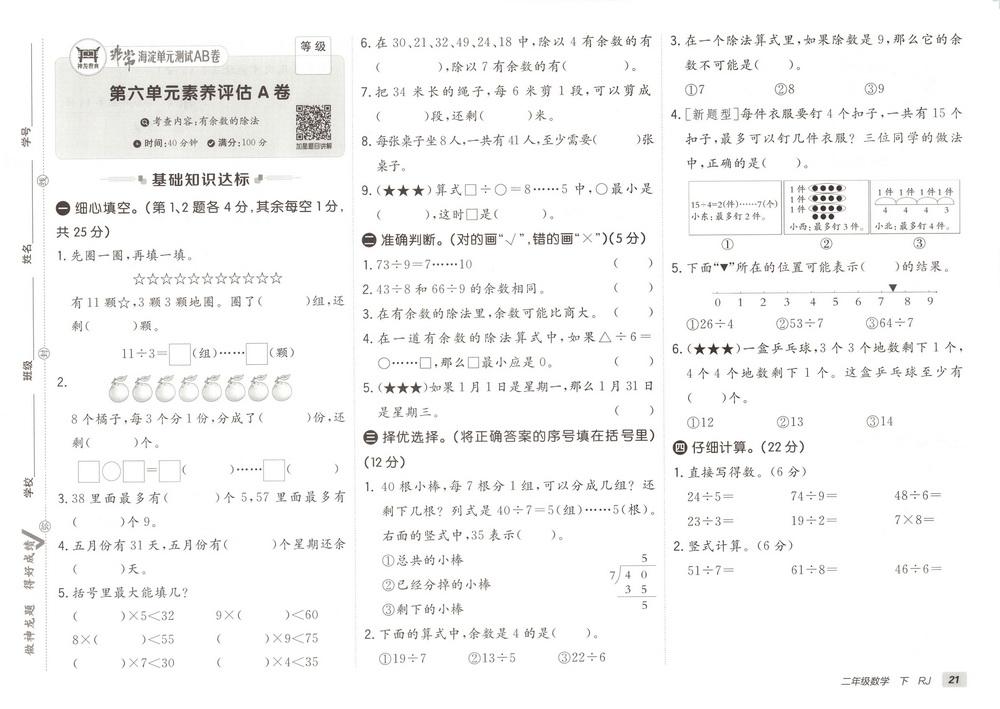 学号
姓名
班级
学校
线
封
密
做神龙题 得好成绩
神龙教育
非常 海淀单元测试AB卷
等级
第六单元素养评估 A 卷
考查内容:有余数的除法
时间:40分钟 满分:100分
扫星题目讲解
基础知识达标
一 细心填空。(第1、2题各4分,其余每空1分,
共25分)
1. 先圈一圈,再填一填。
☆☆☆☆☆☆☆☆☆☆☆
有11颗☆,3颗3颗地圈。圈了( )组,还
剩( )颗。
11÷3=□(组)……□(颗)
2.
8个橘子,每3个分1份,分成了( )份,还
剩( )个。
□○□=□( )……□( )
3. 38里面最多有( )个5,57里面最多有
( )个9。
4. 五月份有31天,五月份有( )个星期还余
( )天。
5. 括号里最大能填几?
( )×5<32 9×( )<60
8×( )<55 ( )×9<75
( )×7<30 ( )×4<35
6. 在30、21、32、49、24、18中,除以4有余数的有
( ),除以7有余数的有( )。
7. 把34米长的绳子,每6米剪1段,可以剪成
( )段,还剩( )米。
8. 每张桌子坐8人,一共有41人,至少需要( )张
桌子。
9. (★★★)算式□÷○=8……5中,○最小是
( ),这时□是( )。
二 准确判断。(对的画“√”,错的画“×”)(5分)
1. 73÷9=7……10 ( )
2. 43÷8和66÷9的余数相同。 ( )
3. 在有余数的除法里,余数可能比商大。 ( )
4. 在一道有余数的除法算式中,如果△÷6=
○……□,那么□最小应是0。 ( )
5. (★★★)如果1月1日是星期一,那么1月31日
是星期三。 ( )
三 择优选择。(将正确答案的序号填在括号里)
(12分)
1. 40根小棒,每7根分1组,可以分成几组?还
剩下几根?列式是40÷7=5(组)……5(根)。
右面的竖式中,35表示( )。
①总共的小棒
②已经分掉的小棒
③剩下的小棒
5
7 4 0
3 5
5
2. 下面的算式中,余数是4的是( )。
①19÷7 ②13÷5 ③22÷6
3. 在一个除法算式里,如果除数是9,那么它的余
数不可能是( )。
①7 ②8 ③9
4. [新题型]每件衣服要钉4个扣子,一共有15个
扣子,最多可以钉几件衣服?三位同学的做法
中,正确的是( )。
15÷4=2(件)……7(个)
小东:最多钉2件。
①
1件
1件
1件
小西:最多钉3件。
②
1件 1件 1件 1件
4 4 4 3
小北:最多钉4件。
③
5. 下面“▼”所在的位置可能表示( )的结果。
0 1 2 3 4 5 6 7 8 9
①26÷4 ②53÷7 ③64÷7
6. (★★★)一盒乒乓球,3个3个地数剩下1个,
4个4个地数剩下1个。这盒乒乓球至少有
( )个。
①12 ②13 ③14
四 仔细计算。(22分)
1. 直接写得数。(6分)
24÷5= 74÷9= 48÷6=
23÷3= 19÷2= 7×8=
2. 竖式计算。(6分)
51÷7= 61÷8= 46÷6=
二年级数学 下 RJ 21